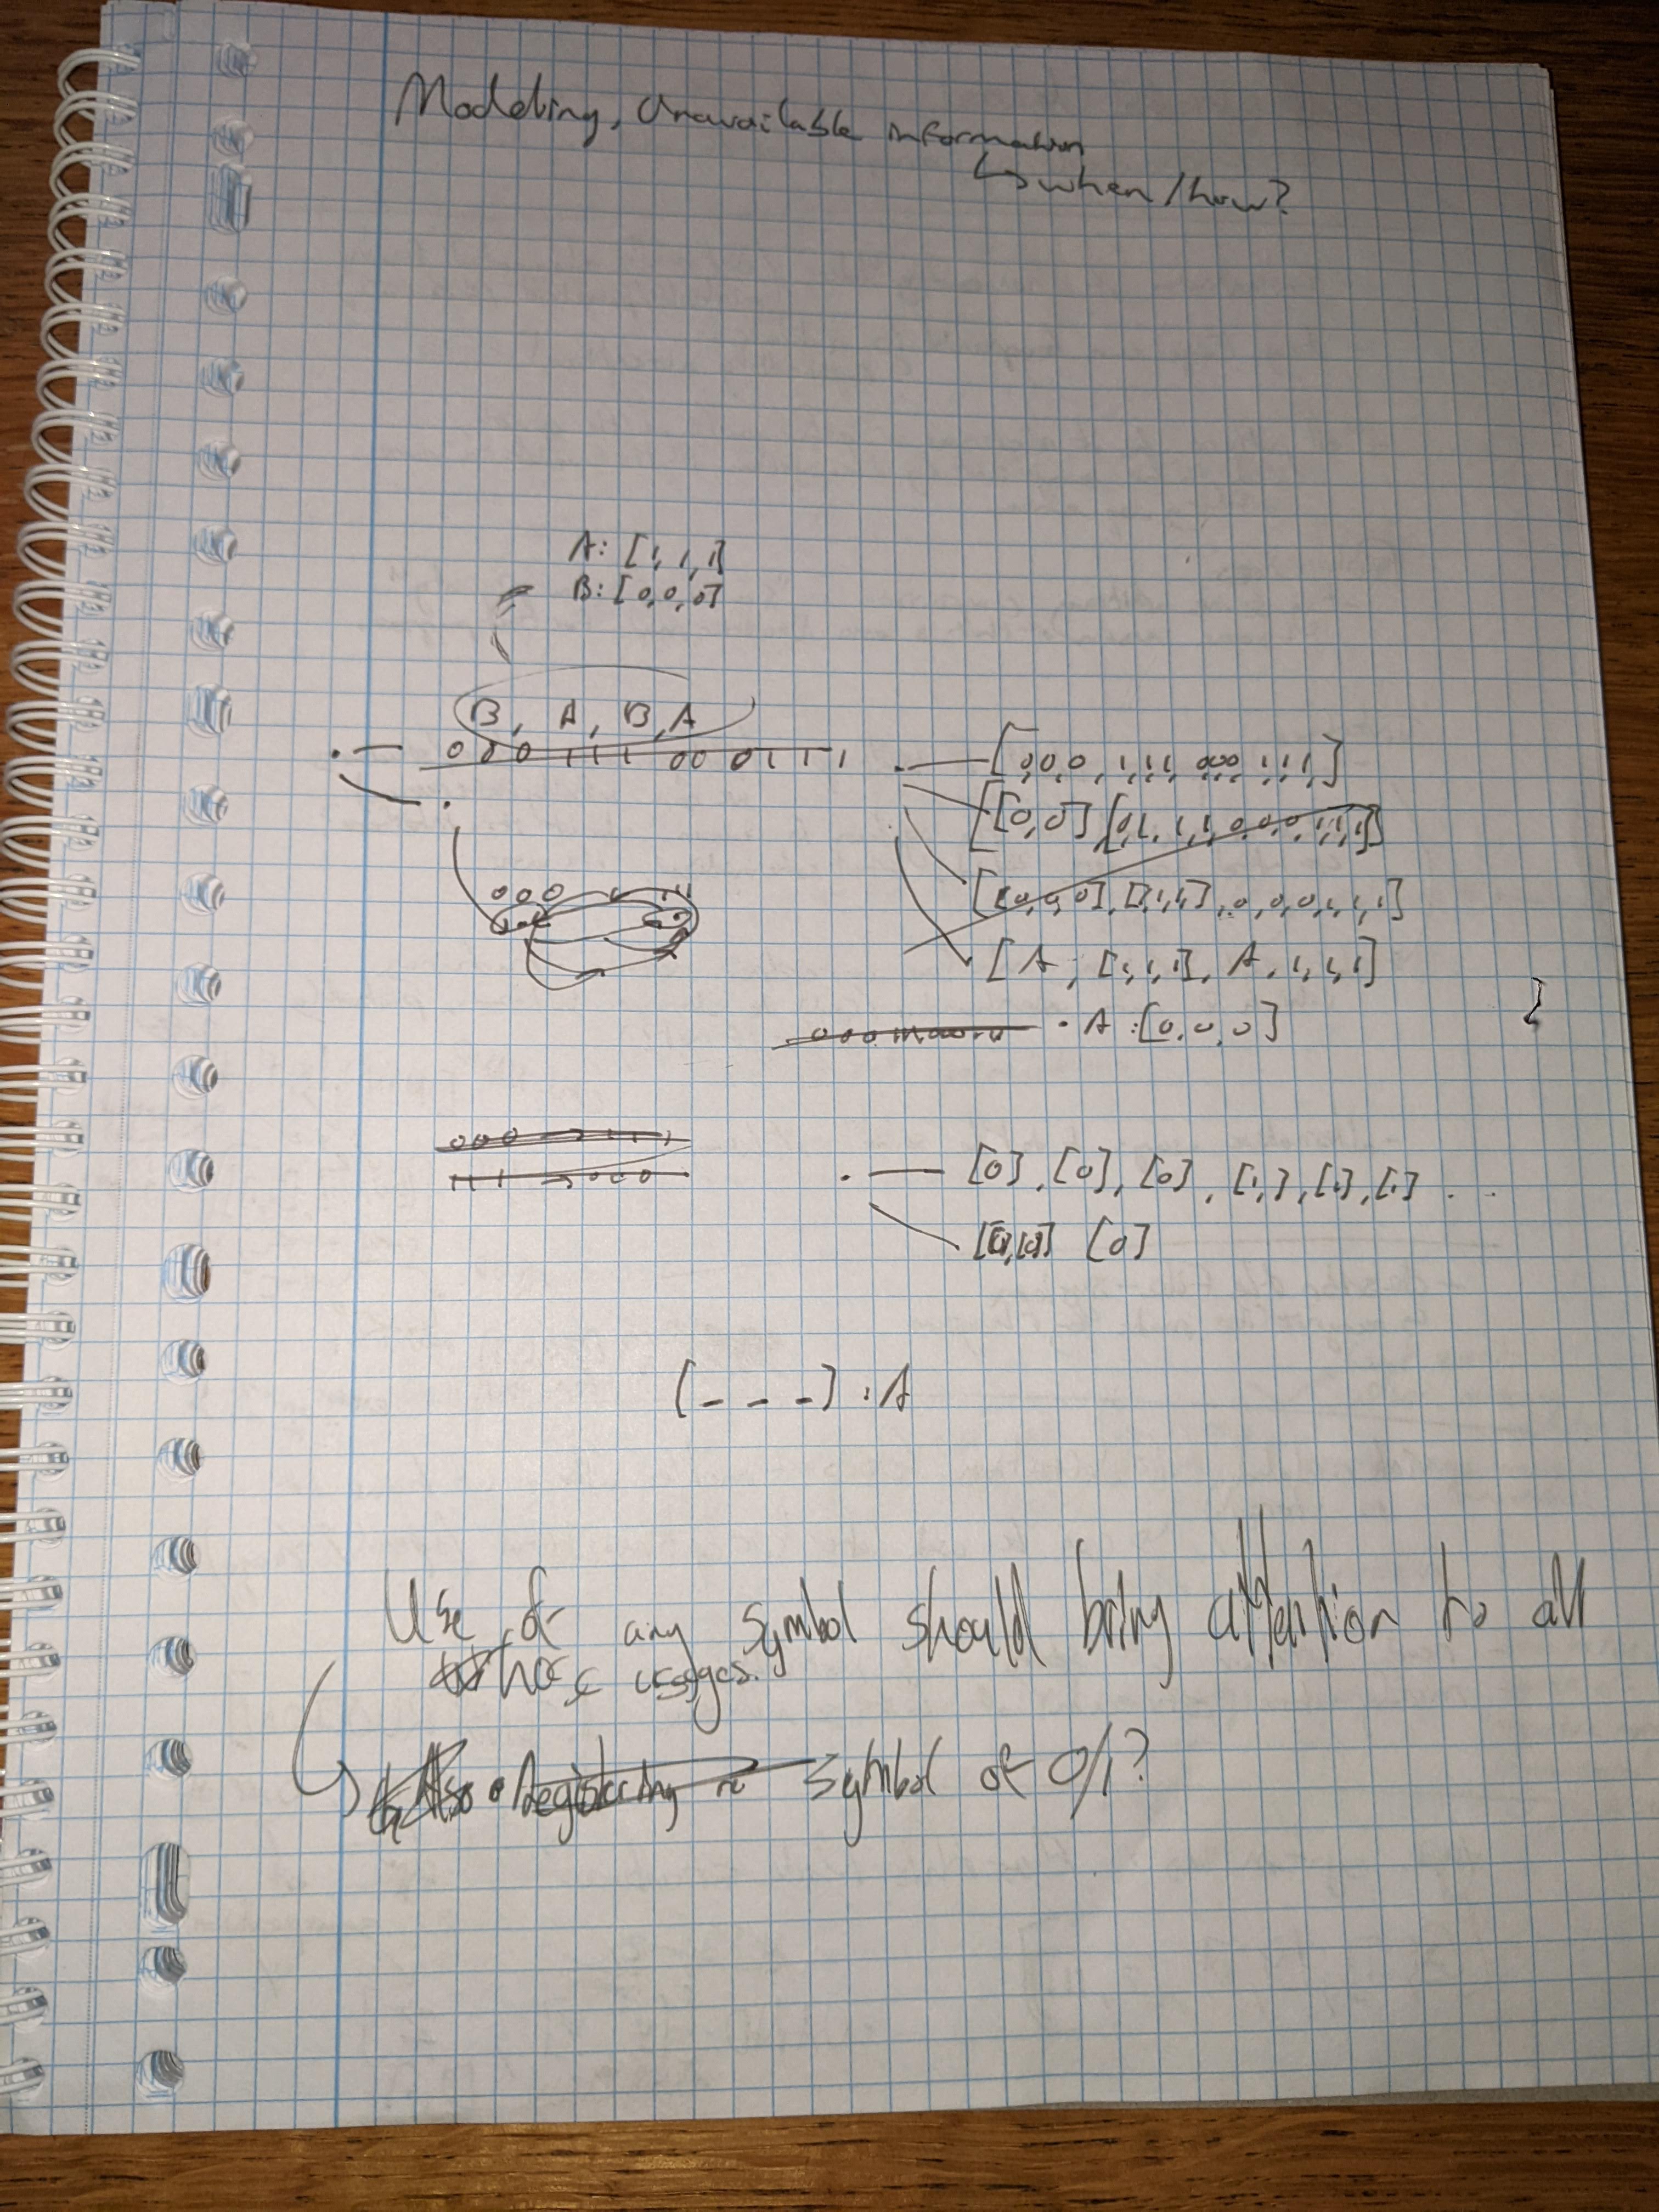 Modeling, Unavailable information
↳ when/how?
A: [1, 1, 1]
B: [0, 0, 0]
B, A, B, A
0 0 0 1 1 1 0 0 0 1 1 1
[0,0,0,1,1,1,0,0,0,1,1,1,]
[[0,0],[0,1,1,1,0,0,0,1,1,1]]
[[0,0,0],[1,1,1],0,0,0,1,1,1]
0 0 0
[A, [1,1,1], A, 1, 1, 1]
• A:[0,0,0]
000 → 111
111 → 000
[0], [0], [0], [1,], [1], [1] ...
[0]
[_ _ _] : A
Use of any symbol should bring attention to all
those usages.
Also • Registering symbol of 0/1?